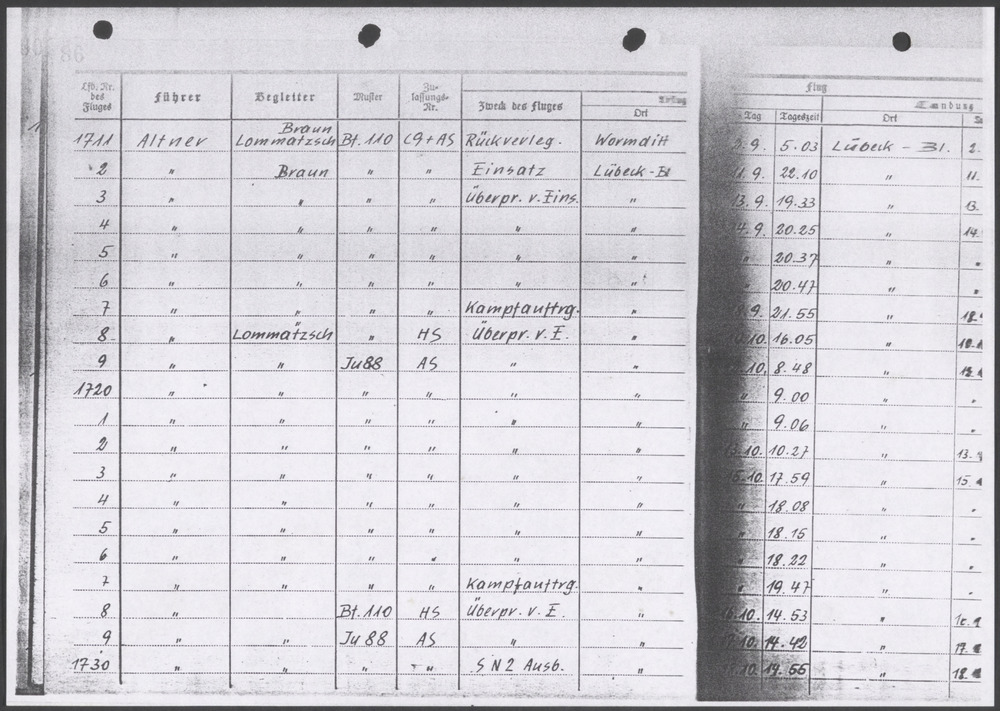 86
Lfd. Nr. des Fluges Führer Begleiter Muster Zulassungs-Nr. Zweck des Fluges Ort Flug Tag Tageszeit Landung Ort
Braun
1711 Altner Lommatzsch Bf. 110 C9+AS Rückverleg. Wormditt 9. 5.03 Lübeck - Bl. 2.
2 " Braun " " Einsatz Lübeck-Bl 11.9. 22.10 " 11.
3 " " " " Überpr. v. Eins. " 13.9. 19.33 " 13.
4 " " " " " " 14.9. 20.25 " 14.
5 " " " " " " " 20.37 " "
6 " " " " " " " 20.47 " "
7 " " " " Kampfauftrg. " 9. 21.55 " 18.
8 " Lommatzsch " HS Überpr. v. E. " 10. 16.05 "
9 " " Ju 88 AS " " 10. 8.48 "
1720 " " " " " " " 9.00 " "
1 " " " " " " " 9.06 " "
2 " " " " " " 13.10. 10.27 " 13.
3 " " " " " " 15.10. 17.59 " 15.
4 " " " " " " " 18.08 " "
5 " " " " " " " 18.15 " "
6 " " " " " " " 18.22 " "
7 " " " " Kampfauftrg. " " 19.47 " "
8 " Bf. 110 HS Überpr. v. E. " 16.10. 14.53 "
9 " " Ju 88 AS " " 17.10. 14.42 " 17.
1730 " " " " SN2 Ausb. " 10. " 18.